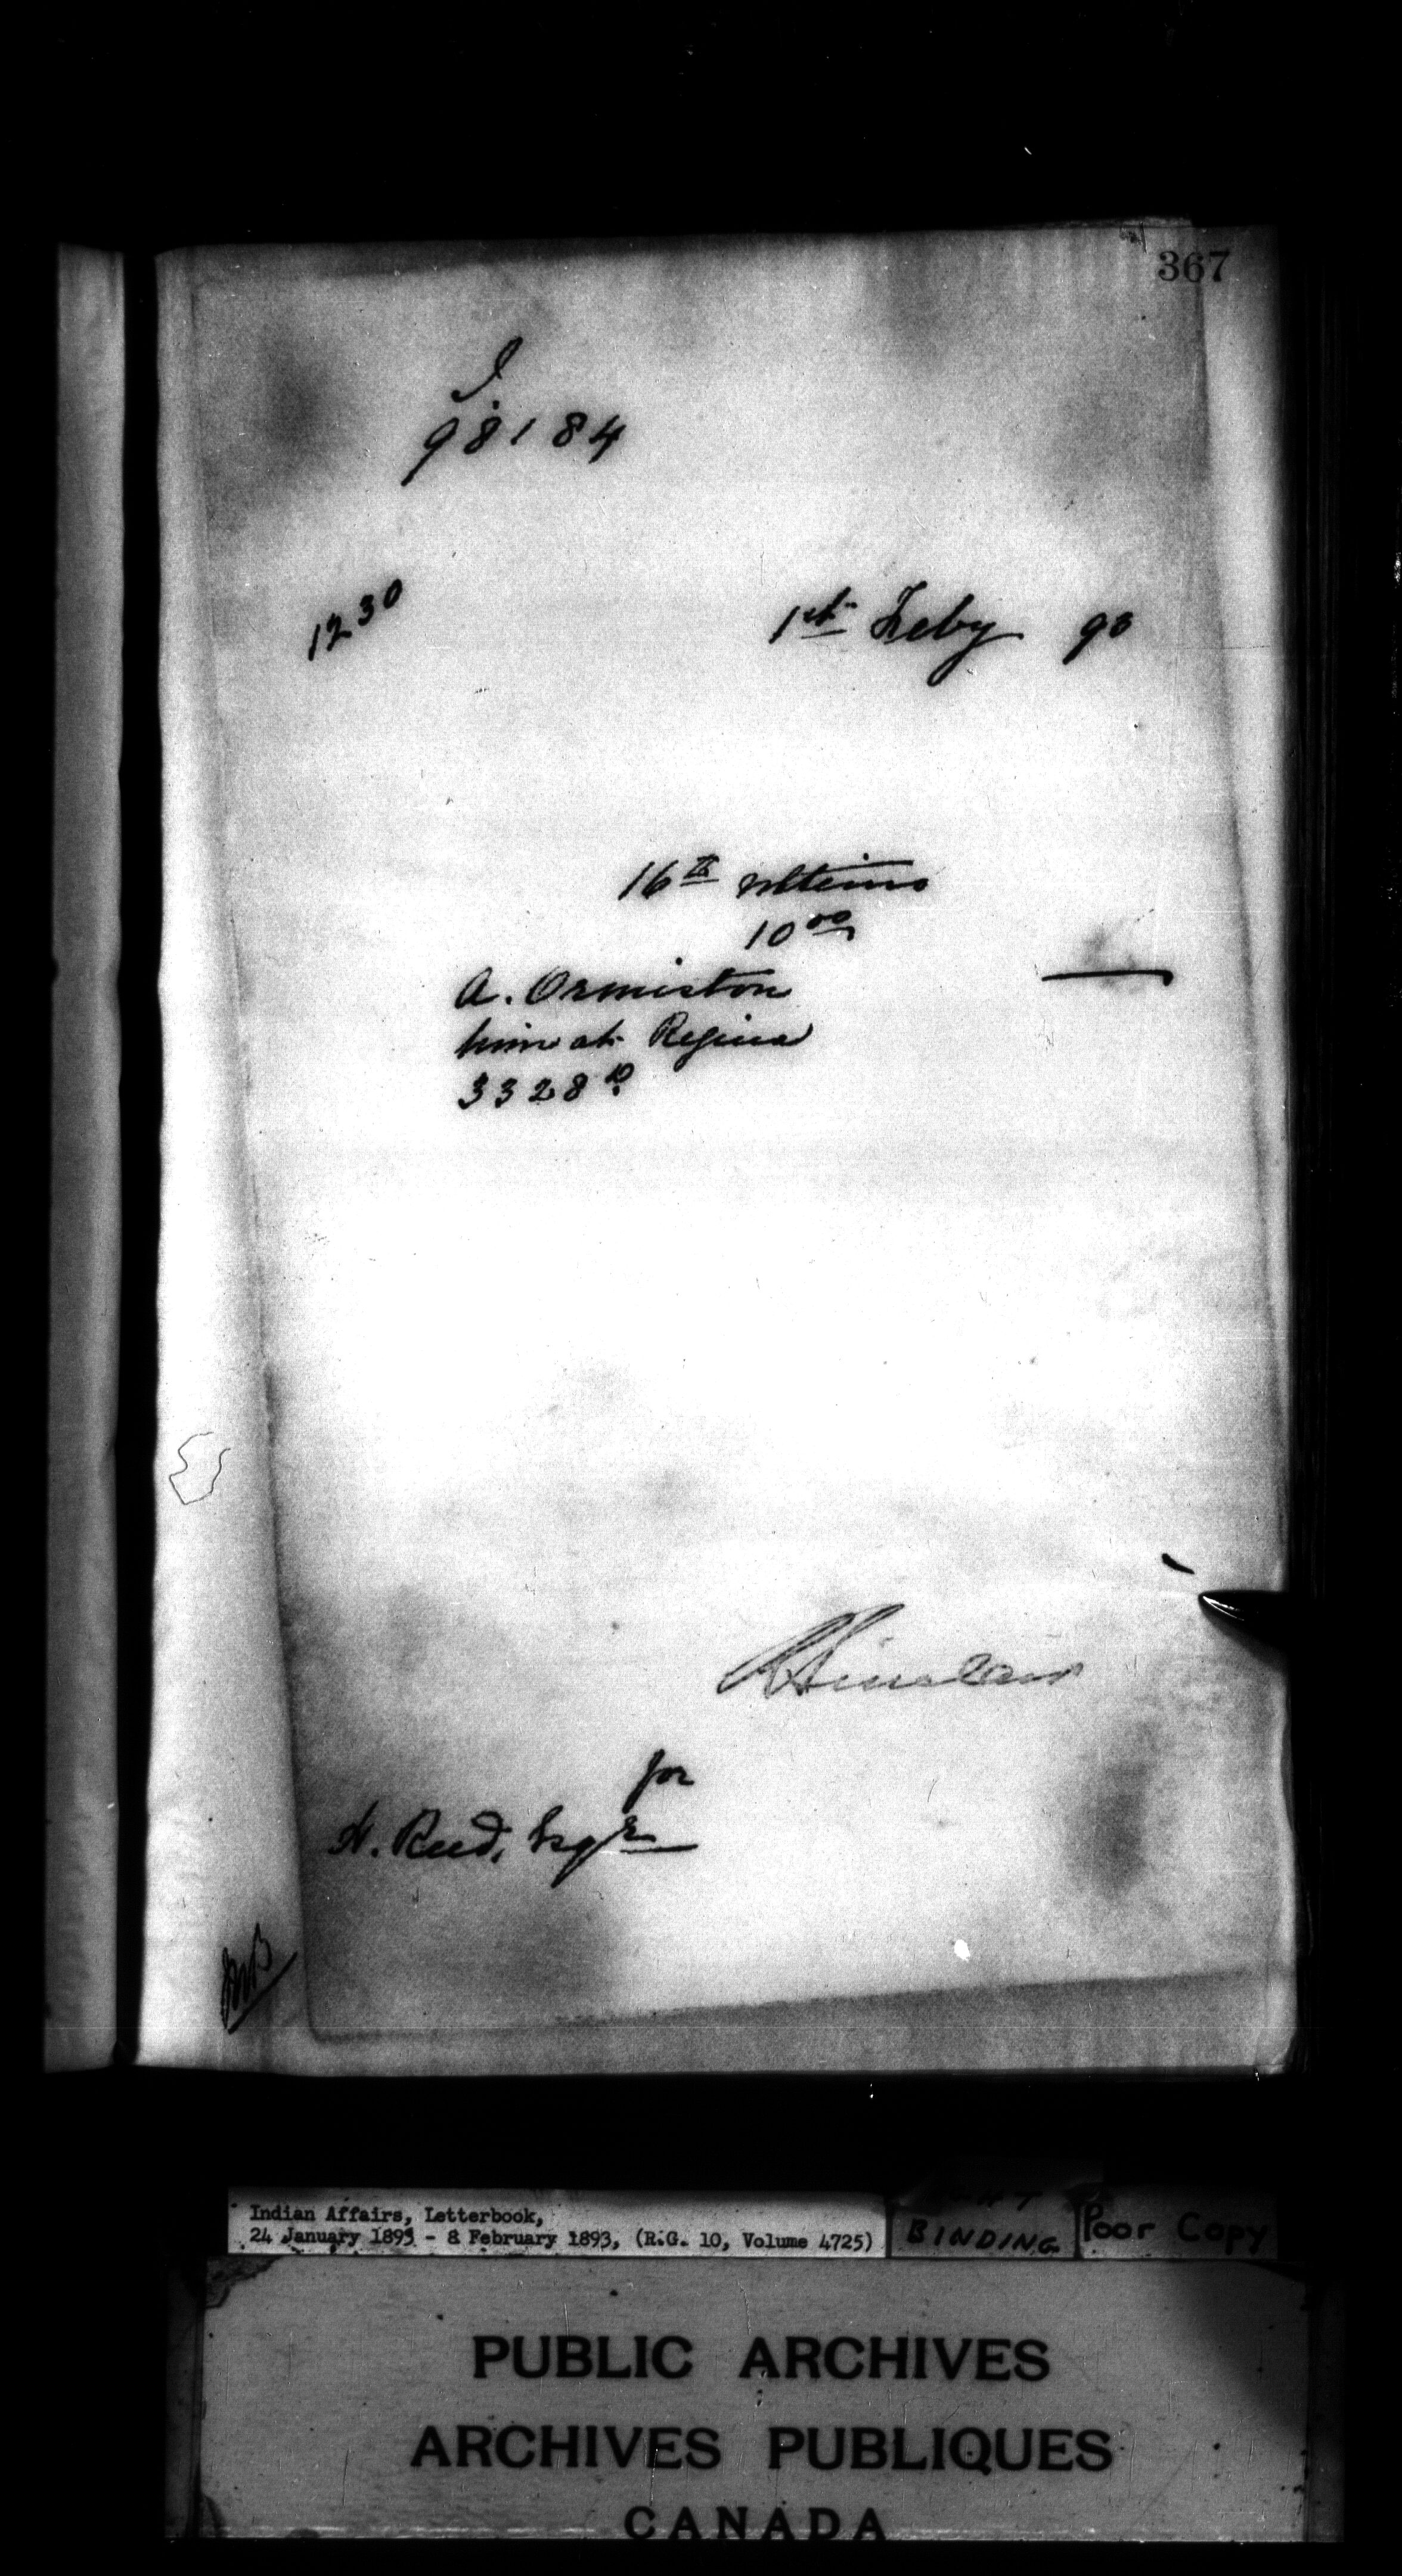 367
98184
1230
1st Feby 93
16th ultimo
10 00
A. Ormiston
him at Regina
3328
for
H. Reed, Esqre
Indian Affairs, Letterbook,
24 January 1893 - 8 February 1893, (R.G. 10, Volume 4725)
BINDING
Poor Copy
PUBLIC ARCHIVES
ARCHIVES PUBLIQUES
CANADA